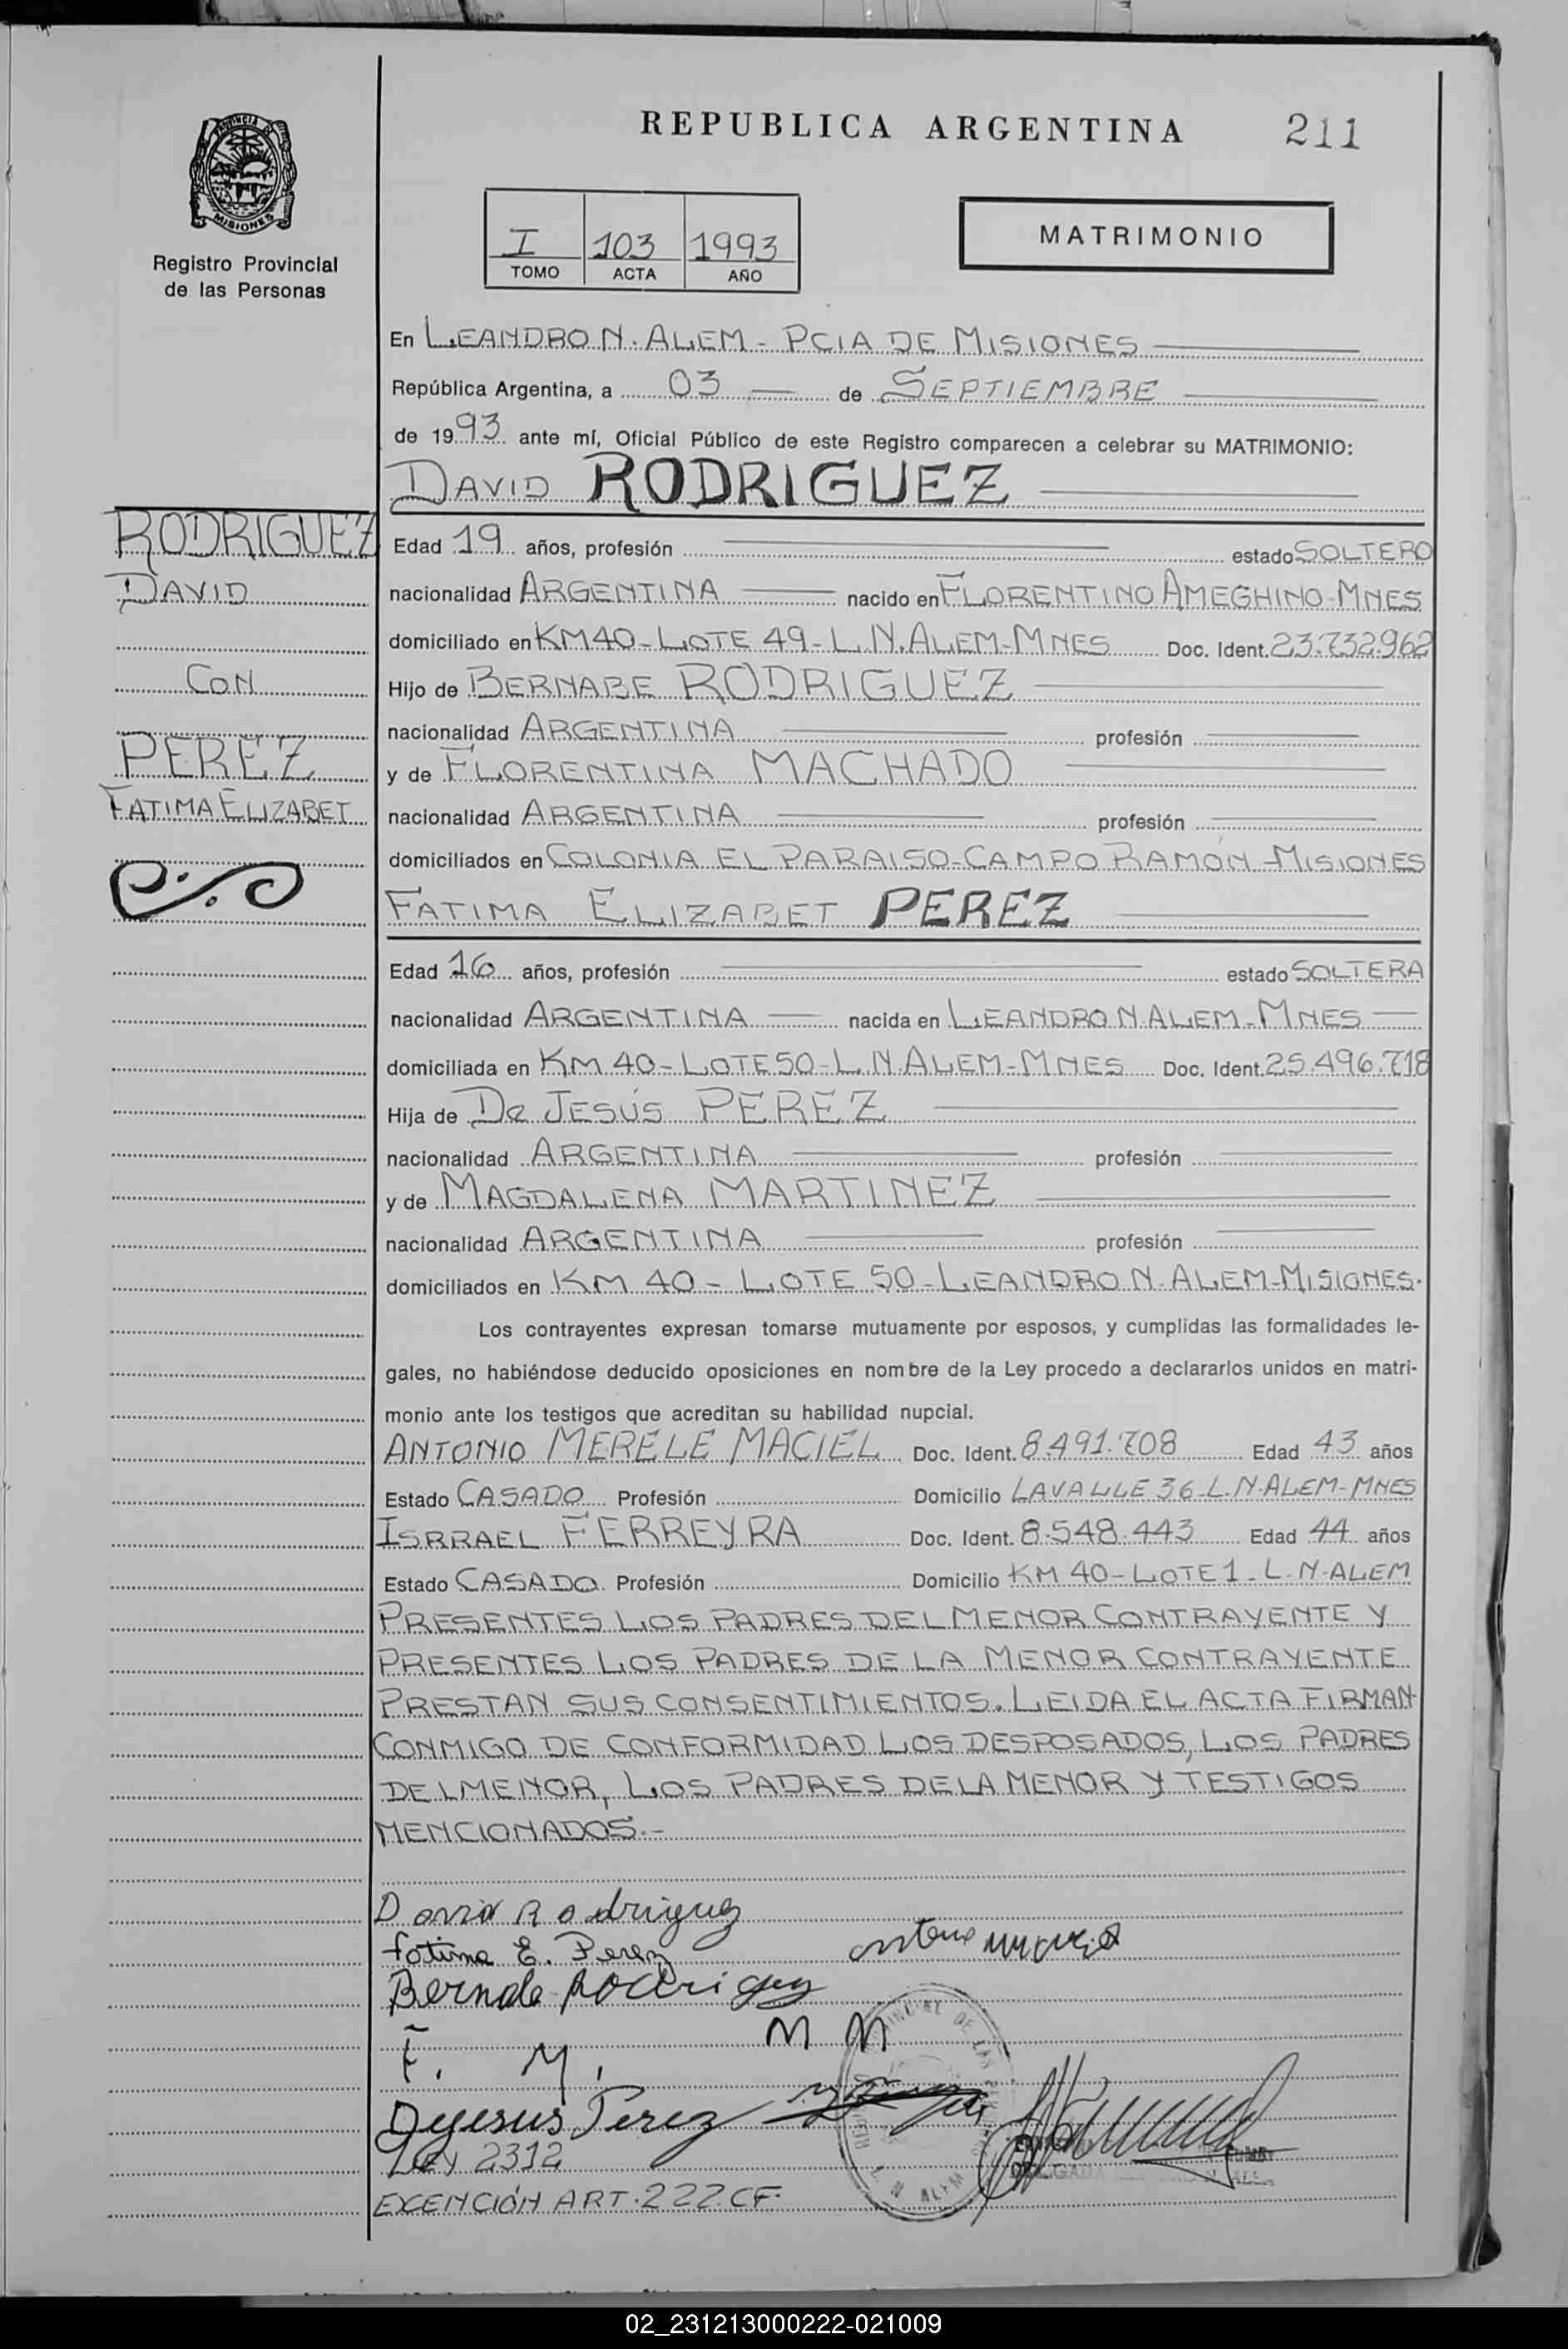 REPUBLICA ARGENTINA 211
PROVINCIA DE
MISIONES
Registro Provincial
de las Personas
I 103 1993
TOMO ACTA AÑO
MATRIMONIO
En LEANDRO N. ALEM - PCIA DE MISIONES
República Argentina, a 03 de SEPTIEMBRE
de 1993 ante mí, Oficial Público de este Registro comparecen a celebrar su MATRIMONIO:
DAVID RODRIGUEZ
RODRIGUEZ
DAVID
CON
PEREZ
FATIMA ELIZABET
Edad 19 años, profesión estado SOLTERO
nacionalidad ARGENTINA nacido en FLORENTINO AMEGHINO-MNES
domiciliado en KM 40-LOTE 49-L.N.ALEM-MNES Doc. Ident. 23.732.962
Hijo de BERNABE RODRIGUEZ
nacionalidad ARGENTINA profesión
y de FLORENTINA MACHADO
nacionalidad ARGENTINA profesión
domiciliados en COLONIA EL PARAISO-CAMPO RAMÓN-MISIONES
FATIMA ELIZABET PEREZ
Edad 16 años, profesión estado SOLTERA
nacionalidad ARGENTINA nacida en LEANDRO N.ALEM-MNES
domiciliada en KM 40-LOTE 50-L.N.ALEM-MNES Doc. Ident. 25.496.718
Hija de De JESÚS PEREZ
nacionalidad ARGENTINA profesión
y de MAGDALENA MARTINEZ
nacionalidad ARGENTINA profesión
domiciliados en KM 40 - LOTE 50-LEANDRO N.ALEM-MISIONES.
Los contrayentes expresan tomarse mutuamente por esposos, y cumplidas las formalidades le-
gales, no habiéndose deducido oposiciones en nombre de la Ley procedo a declararlos unidos en matri-
monio ante los testigos que acreditan su habilidad nupcial.
ANTONIO MERELE MACIEL Doc. Ident. 8.491.708 Edad 43 años
Estado CASADO Profesión Domicilio LAVALLE 36-L.N.ALEM-MNES
ISRRAEL FERREYRA Doc. Ident. 8.548.443 Edad 44 años
Estado CASADO Profesión Domicilio KM 40-LOTE 1-L.N.ALEM
PRESENTES LOS PADRES DEL MENOR CONTRAYENTE Y
PRESENTES LOS PADRES DE LA MENOR CONTRAYENTE
PRESTAN SUS CONSENTIMIENTOS. LEIDA EL ACTA FIRMAN
CONMIGO DE CONFORMIDAD LOS DESPOSADOS, LOS PADRES
DEL MENOR, LOS PADRES DE LA MENOR Y TESTIGOS
MENCIONADOS.-
David Rodriguez
Fatima E. Perez
Bernabe Rodriguez
F. M. M M
Dejesus Perez
LEY 2312
EXENCIÓN ART. 222.CF.
L. N. ALEM
02_231213000222-021009